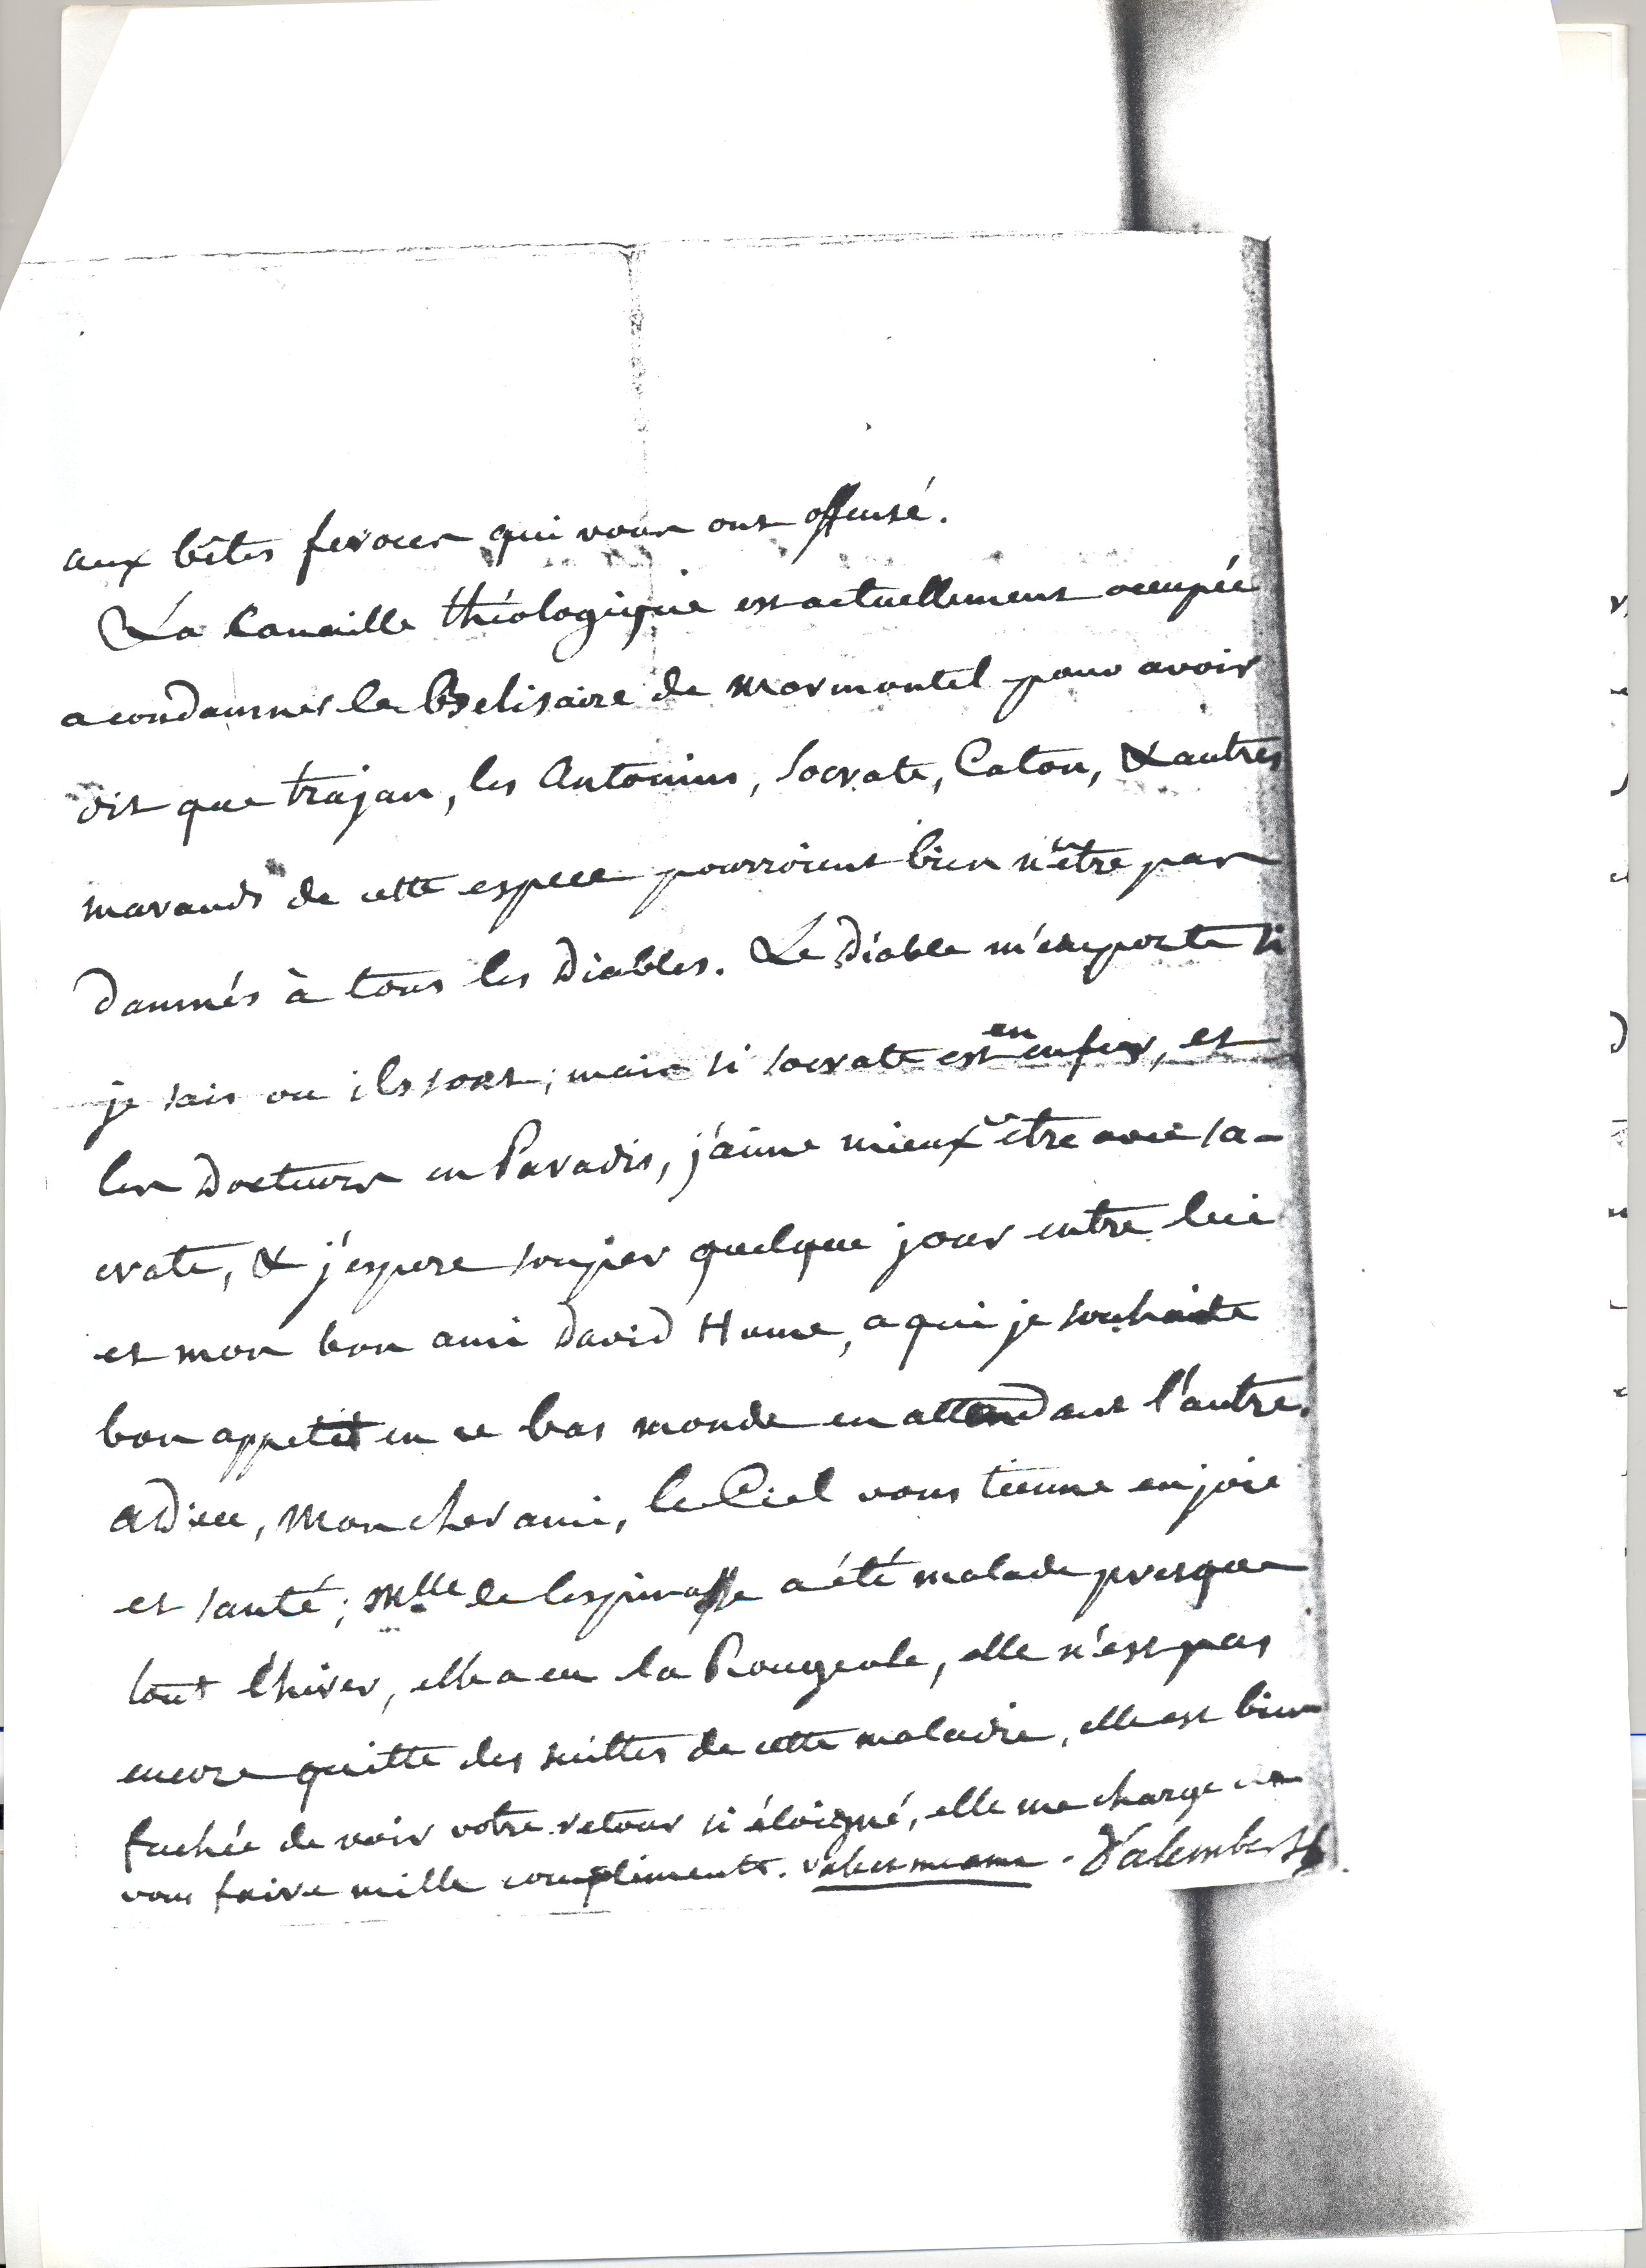 aux bêtes feroces qui vous ont offensé.
La Canaille théologique est actuellement occupée
a condamner le Belisaire de Marmontel pour avoir
dit que trajan, les Antonins, Socrate, Caton, & autres
marauds de cette espece pourroient bien n'être pas
damnés à tous les diables. Le diable m'emporte si
je sais ou ils sont; mais si socrate est en enfer, et
les docteurs en Paradis, j'aime mieux être avec so-
crate, & j'espere souper quelque jour entre lui
et mon bon ami David Hume, a qui je souhaite
bon appetit en ce bas monde en attendant l'autre.
adieu, mon cher ami, le Ciel vous tienne en joie
et santé; Mlle de lespinasse a été malade presque
tout l'hiver, elle a eu la Rougeole, elle n'est pas
encore quitte des suittes de cette maladie, elle est bien
fachée de voir votre retour si éloigné, elle me charge de
vous faire mille compliments. vale et me ama. D'alembert